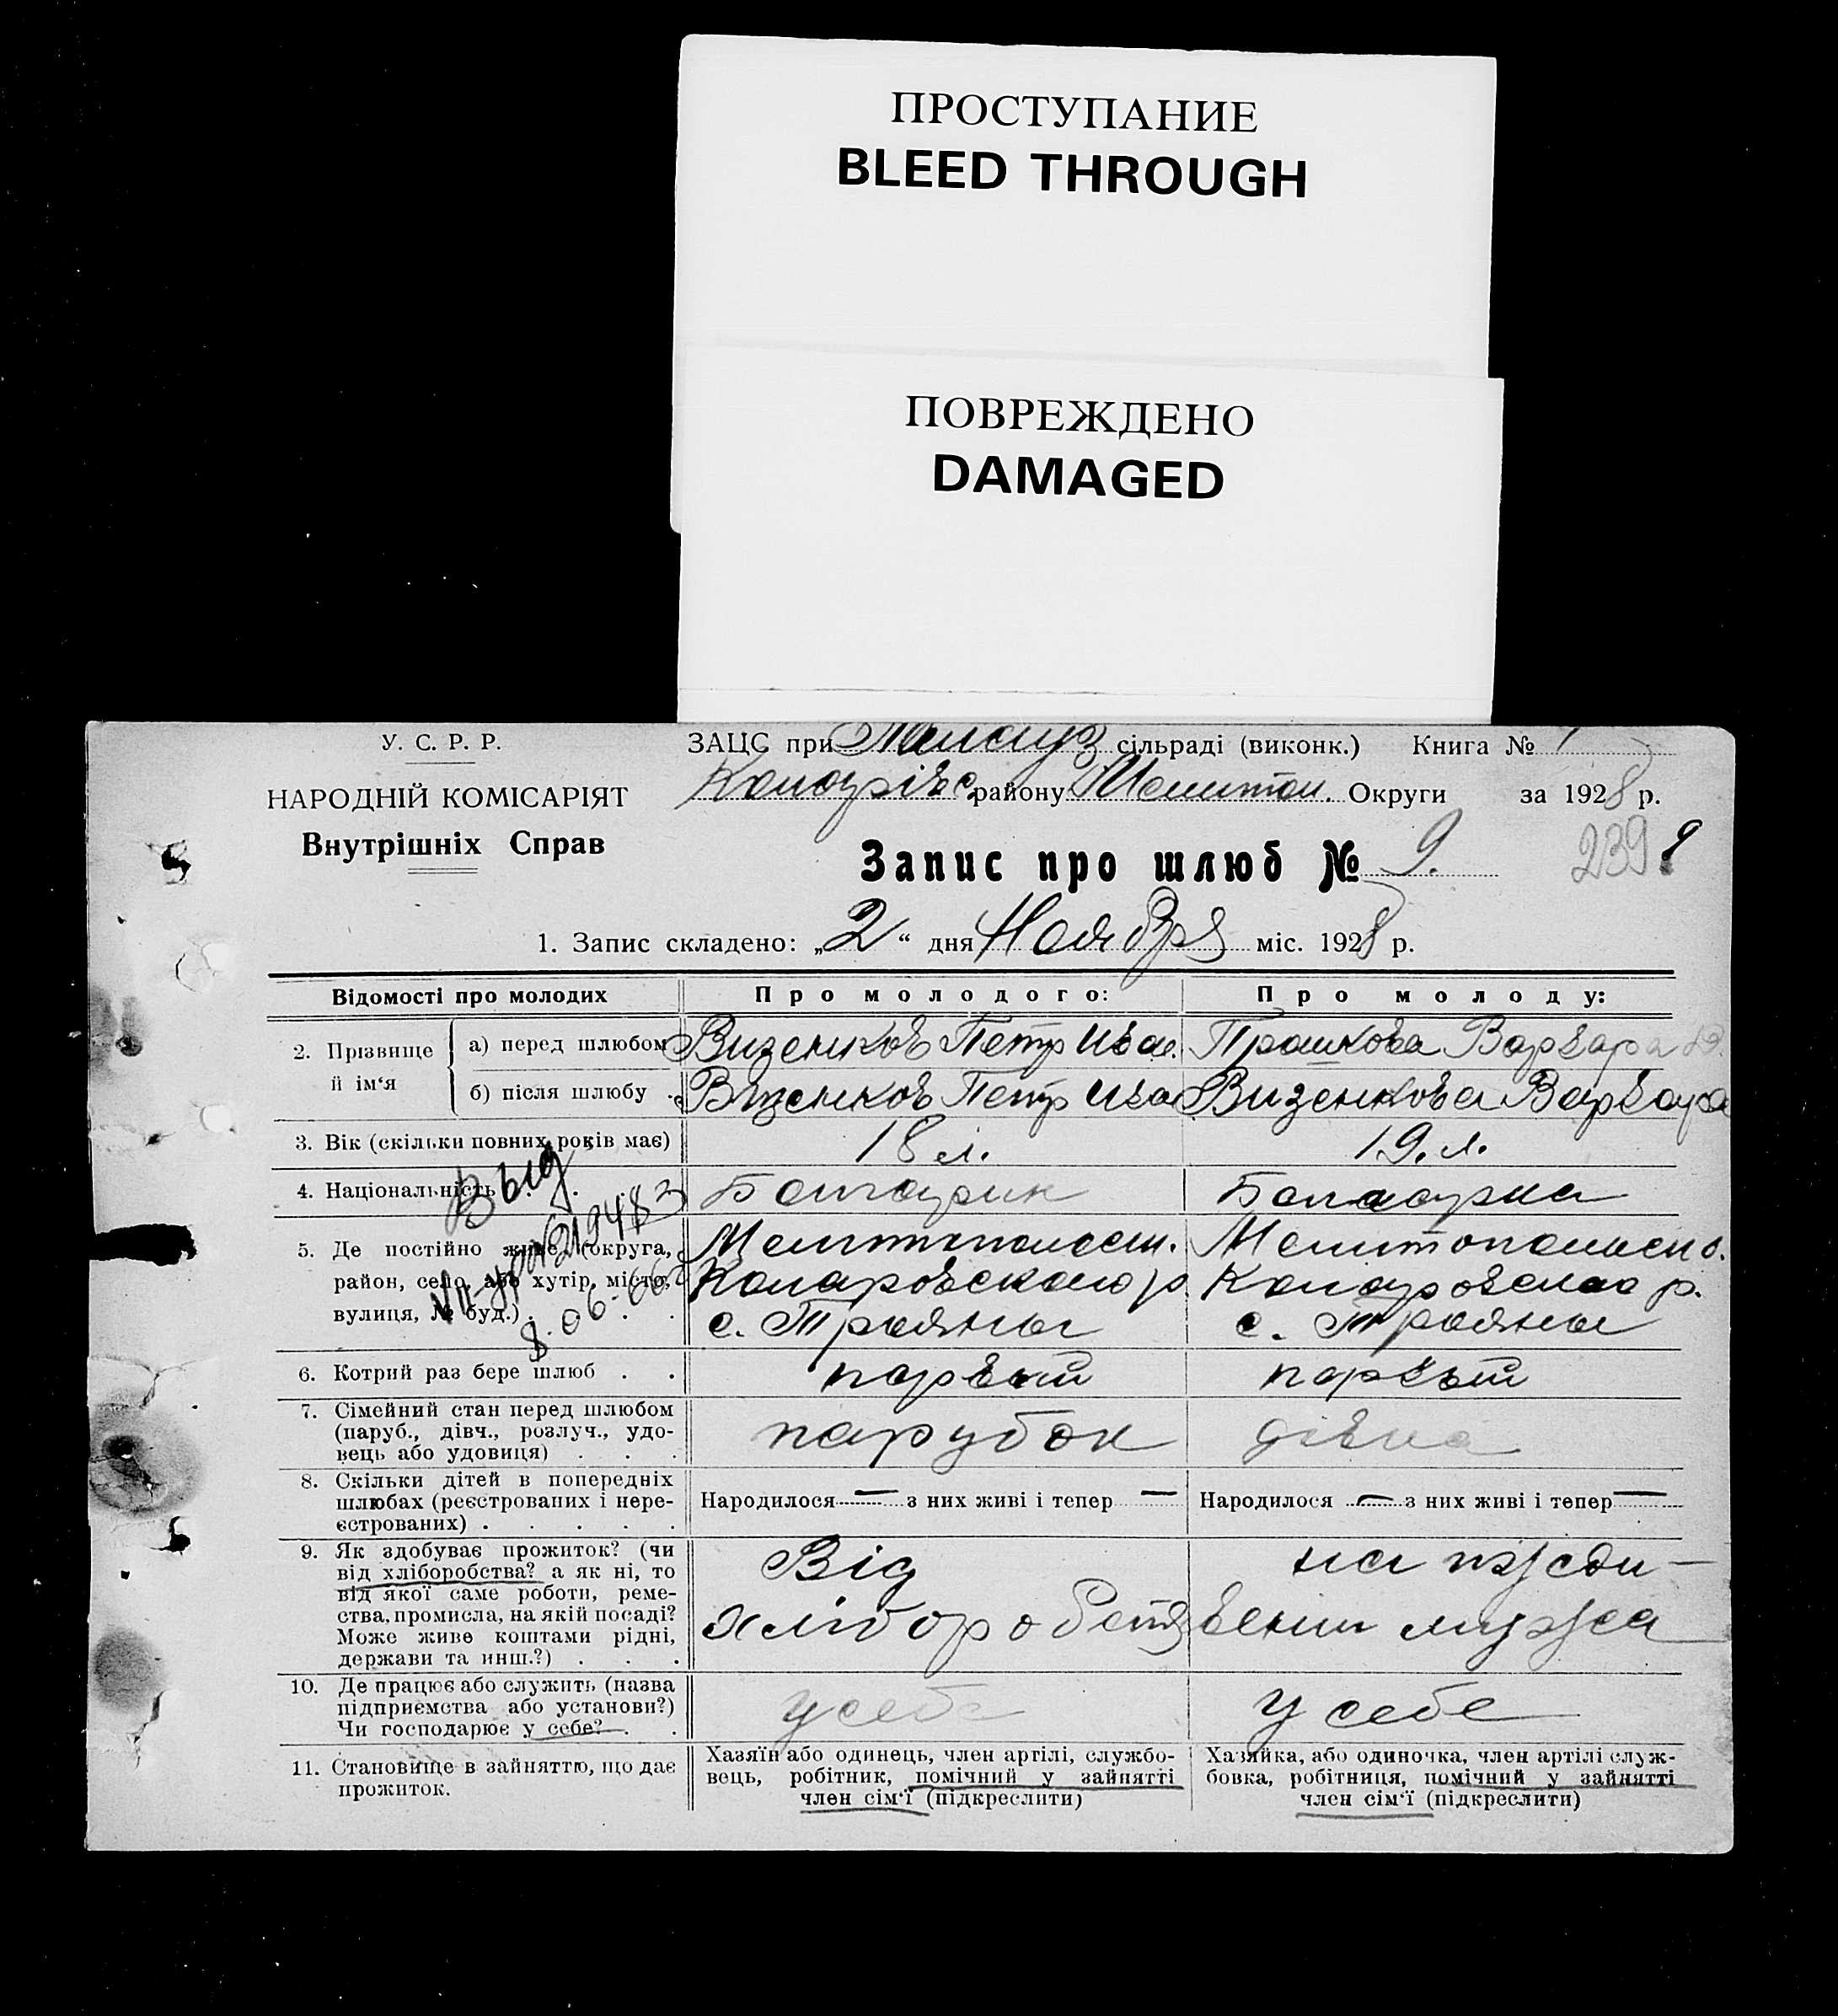 ПРОСТУПАНИЕ
BLEED THROUGH
ПОВРЕЖДЕНО
DAMAGED
У. С. Р. Р.
НАРОДНІЙ КОМІСАРІЯТ
Внутрішніх Справ
ЗАЦС при сільраді (виконк.) Книга № 1
району Округи за 1928 р.
Запис про шлюб № 9.
239
1. Запис складено: „2“ дня Ноября міс. 1928 р.
Відомості про молодих
Про молодого:
Про молоду:
2. Прізвище й ім‘я
а) перед шлюбом
Визенков Петр Ива.
Прашкова Варвара
б) після шлюбу
Визенков Петр Ива
Визенкова Варвара
3. Вік (скільки повних років має)
18 л.
19. л.
4. Національність
Болгарин
Болгарка
5. Де постійно живе (округа,
район, село, або хутір, місто,
вулиця, № буд.)
Коларовского р.
с. Трояны
р.
с. Трояны
Выд
8. 06. 66
6. Котрий раз бере шлюб . .
первый
первый
7. Сімейний стан перед шлюбом
(паруб., дівч., розлуч., удо-
вець або удовиця) . . .
парубок
дівка
8. Скільки дітей в попередніх
шлюбах (реєстрованих і нере-
єстрованих) . . . . .
Народилося — з них живі і тепер —
Народилося — з них живі і тепер —
9. Як здобуває прожиток? (чи
від хліборобства? а як ні, то
від якої саме роботи, реме-
ства, промисла, на якій посаді?
Може живе коштами рідні,
держави та инш.?) . . .
Від
на ижди-
вении мужа
10. Де працює або служить (назва
підприємства або установи?)
Чи господарює у себе? . .
у себе
у себе
11. Становище в зайняттю, що дає
прожиток.
Хазяїн або одинець, член артілі, службо-
вець, робітник, помічний у зайнятті
член сім‘ї (підкреслити)
Хазяйка, або одиночка, член артілі служ-
бовка, робітниця, помічний у зайнятті
член сім‘ї (підкреслити)